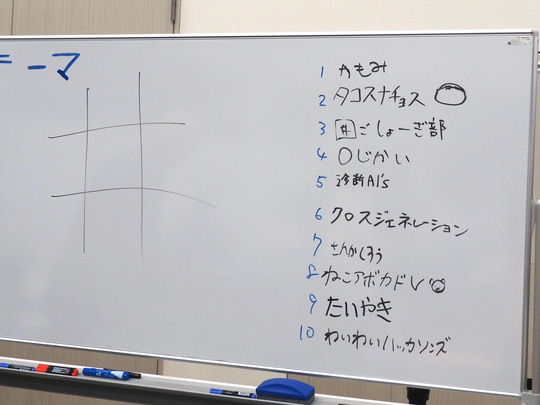 ーマ
1 かもみ
2 タコスナチョス
3 囲ごしょーぎ部
4 〇じかい
5 診断AI's
6 クロスジェネレーション
7 さんかしろう
8 ねこアボカド
9 たいやき
10 わいわいハッカソンズ